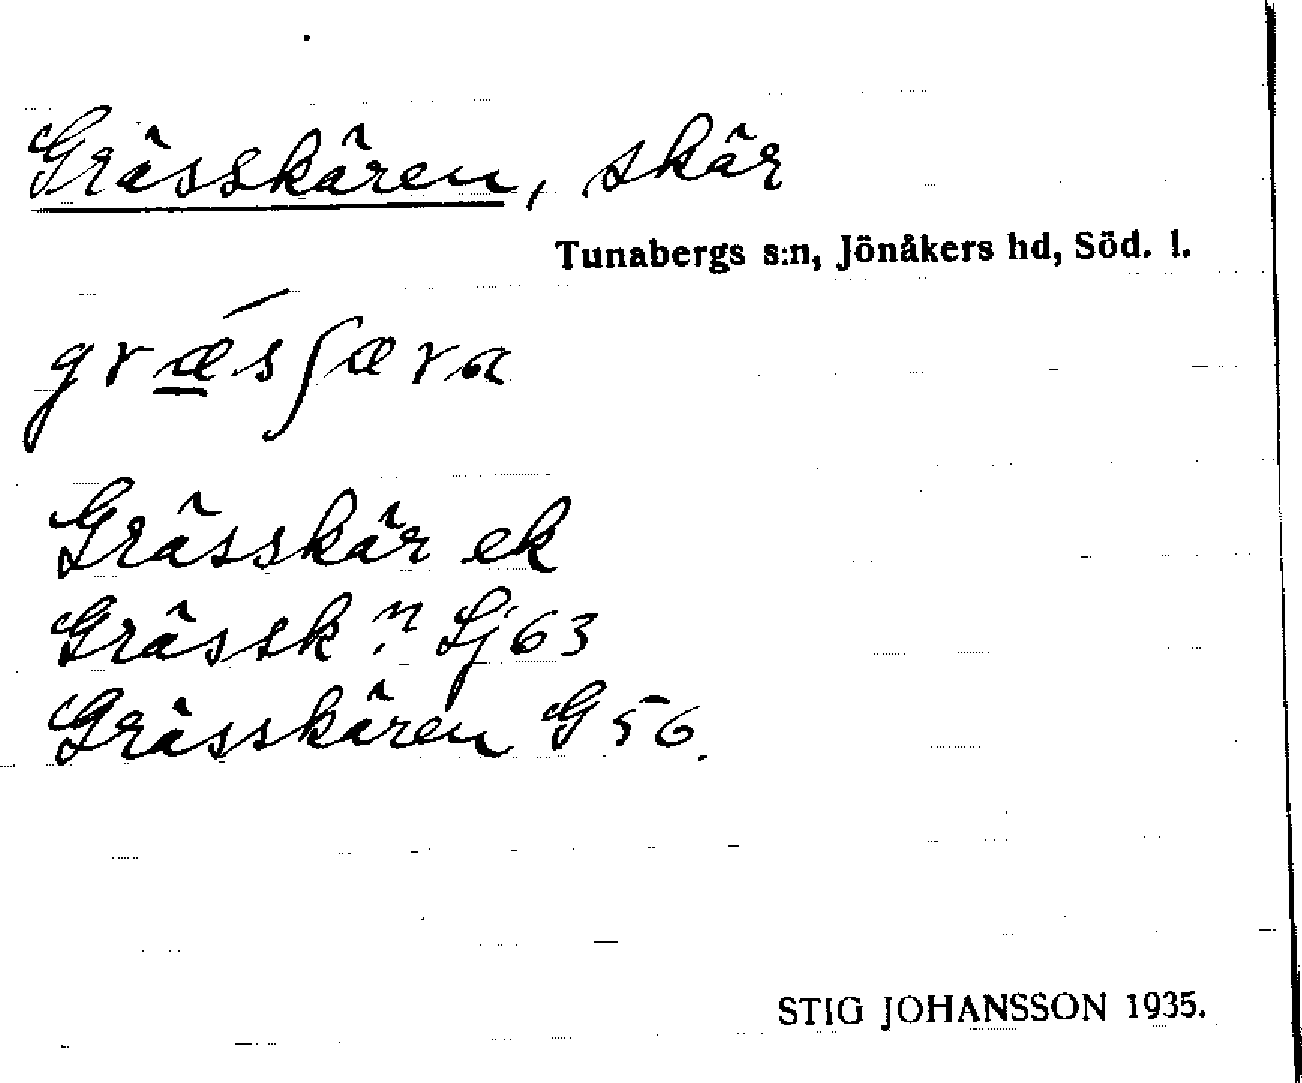 Grässkären, skär
Tunabergs s:n, Jönåkers hd, Söd. l.
grǽ̱sʃæra
Grässkär ek
Grässk:n Sj 63
Grässkären G 56.
STIG JOHANSSON 1935.